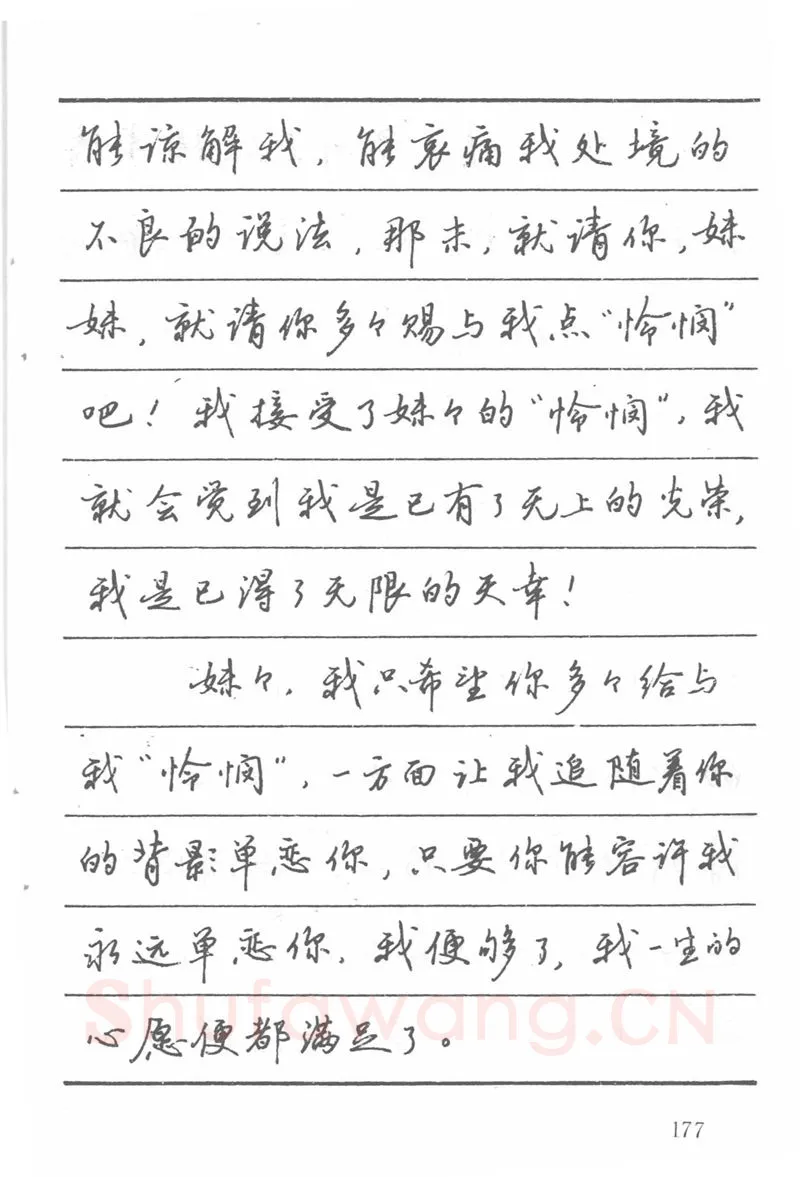 能谅解我，能哀痛我处境的
不良的说法，那末，就请你，妹
妹，就请你多々赐与我点“怜悯”
吧！我接受了妹々的“怜悯”，我
就会觉到我是已有了无上的光荣，
我是已得了无限的天幸！
妹々，我只希望你多々给与
我“怜悯”，一方面让我追随着你
的背影单恋你，只要你能容许我
永远单恋你，我便够了，我一生的
心愿便都满足了。
Shufawang.CN
177